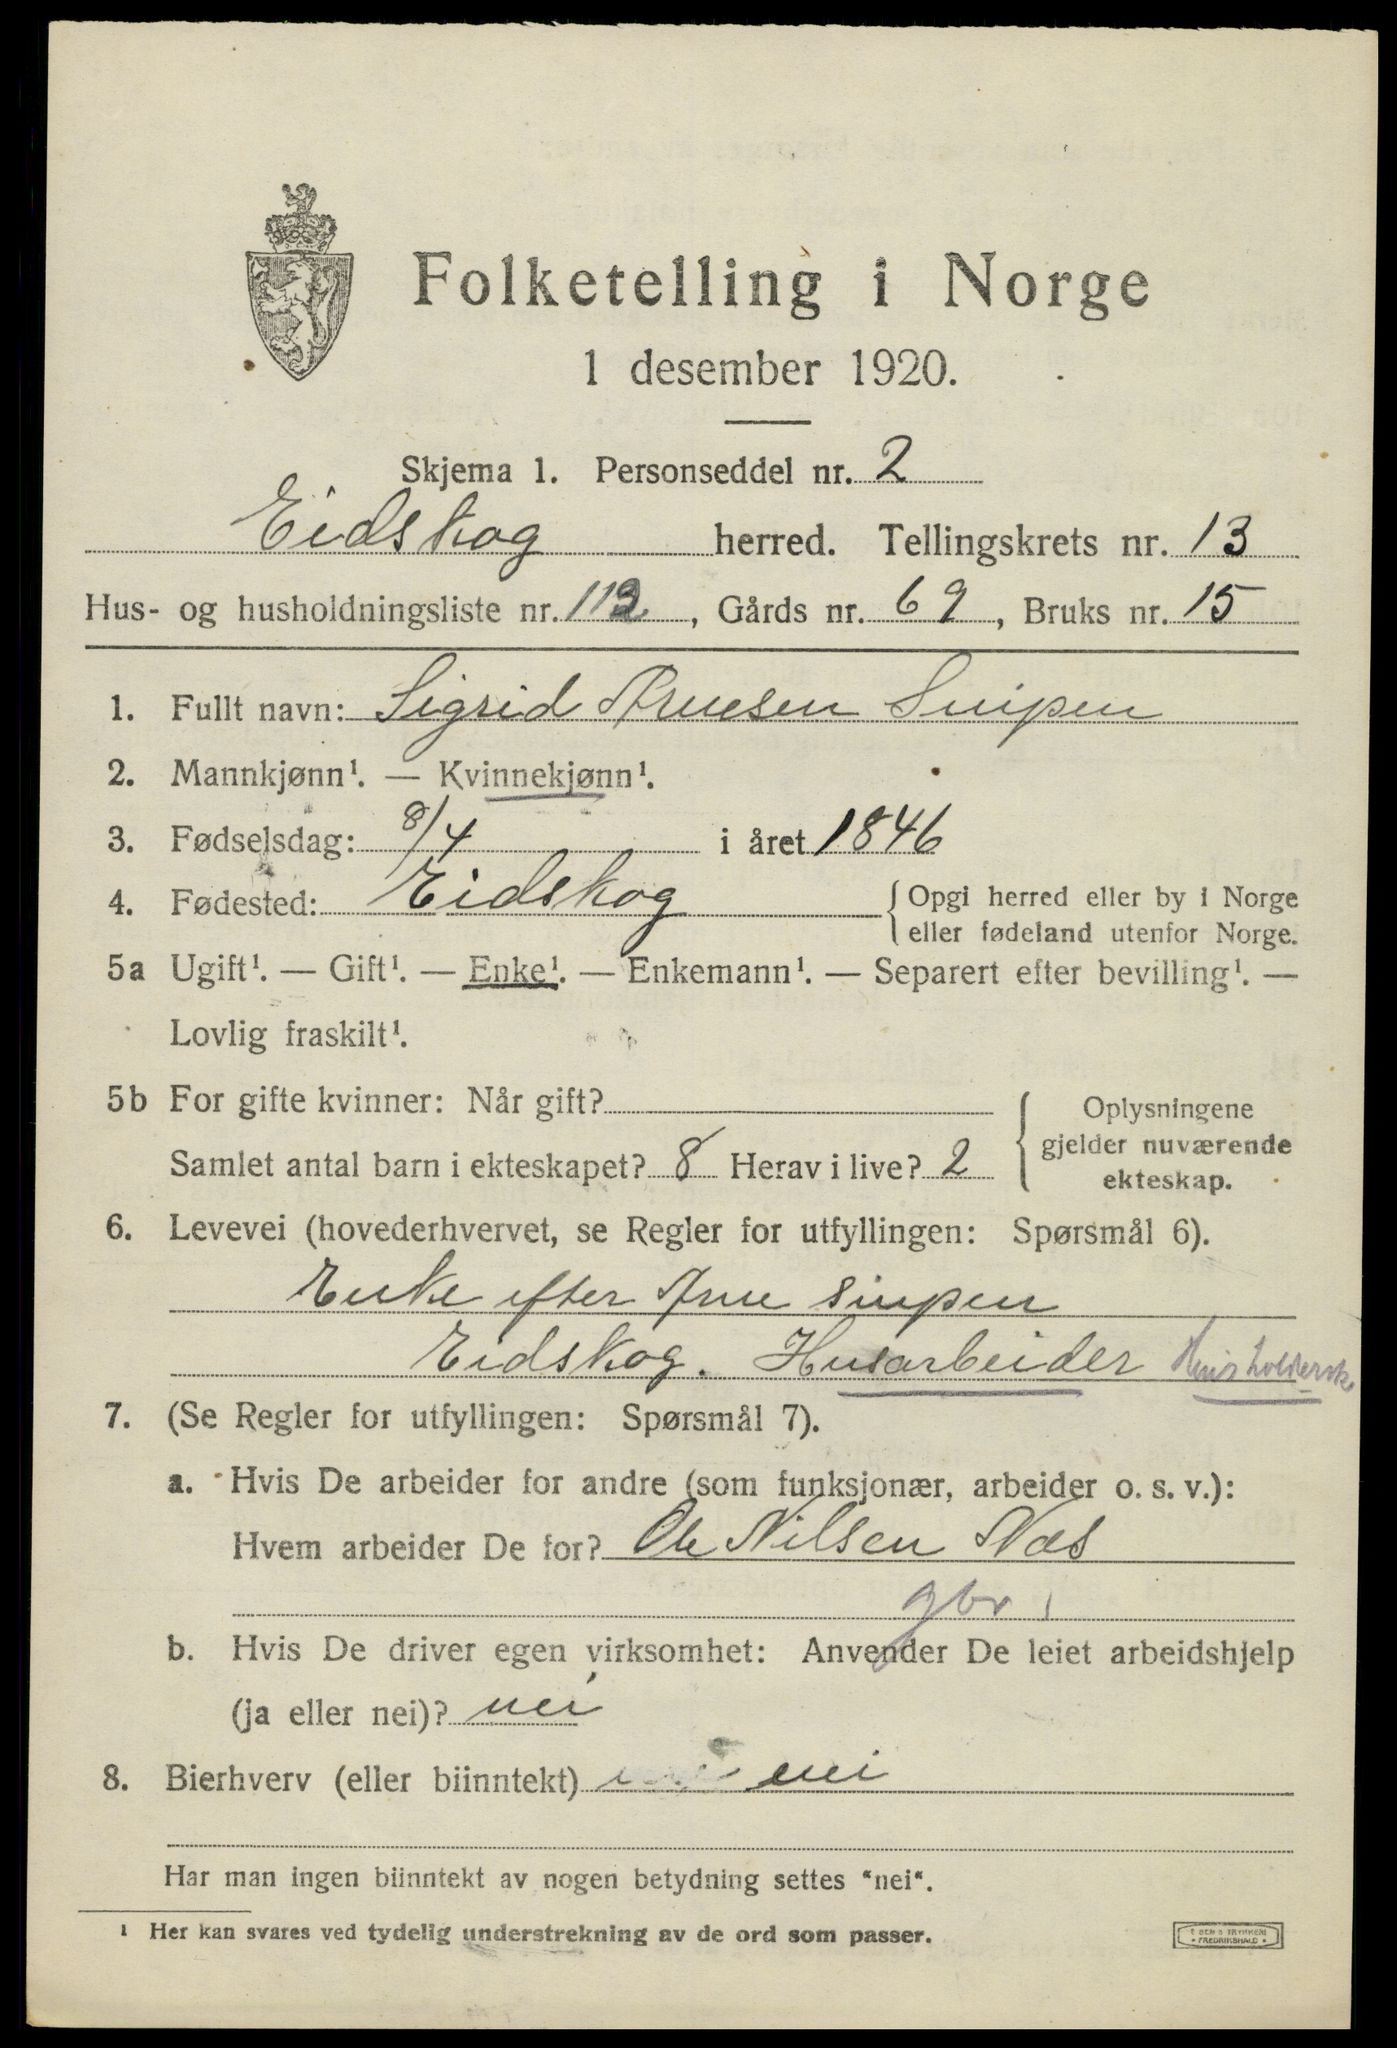 Folketelling i Norge
1 desember 1920.
Skjema 1. Personseddel nr. 2
Eidskog herred. Tellingskrets nr. 13
Hus- og husholdningsliste nr. 112, Gårds nr. 69, Bruks nr. 15
1. Fullt navn: Sigrid Arnesen Snipen
2. Mannkjønn¹. — Kvinnekjønn¹.
3. Fødselsdag: 8/4 i året 1846
4. Fødested: Eidskog { Opgi herred eller by i Norge
eller fødeland utenfor Norge.
5a Ugift¹. — Gift¹. — Enke¹. — Enkemann¹. — Separert efter bevilling¹. —
Lovlig fraskilt¹.
5b For gifte kvinner: Når gift? { Oplysningene
gjelder nuværende
Samlet antal barn i ekteskapet? 8 Herav i live? 2
ekteskap.
6. Levevei (hovederhvervet, se Regler for utfyllingen: Spørsmål 6).
Enke efter Arne Snipen
Eidskog. Husarbeider Husholderske
7. (Se Regler for utfyllingen: Spørsmål 7).
a. Hvis De arbeider for andre (som funksjonær, arbeider o. s. v.):
Hvem arbeider De for? Ole Nilsen Næs
gbr
b. Hvis De driver egen virksomhet: Anvender De leiet arbeidshjelp
(ja eller nei)? nei
8. Bierhverv (eller biinntekt) nei
Har man ingen biinntekt av nogen betydning settes "nei".
¹ Her kan svares ved tydelig understrekning av de ord som passer.